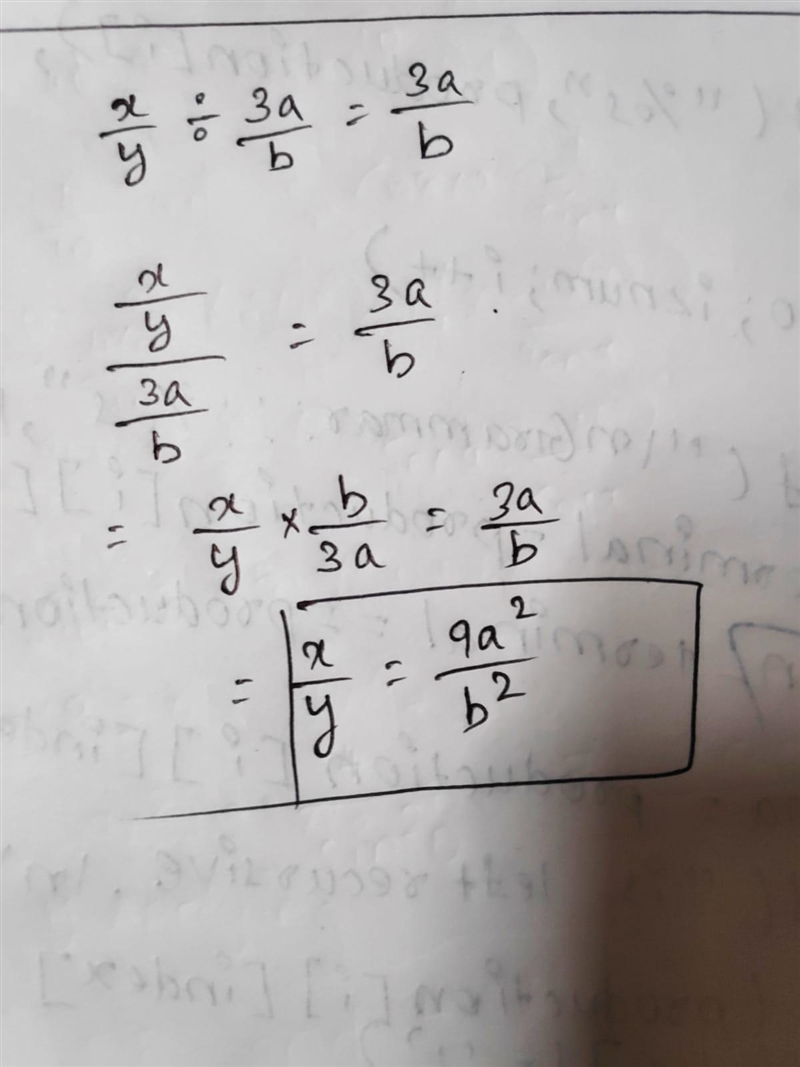 x/y ÷ 3a/b = 3a/b
(x/y)/(3a/b) = 3a/b
= x/y × b/3a = 3a/b
= x/y = 9a²/b²